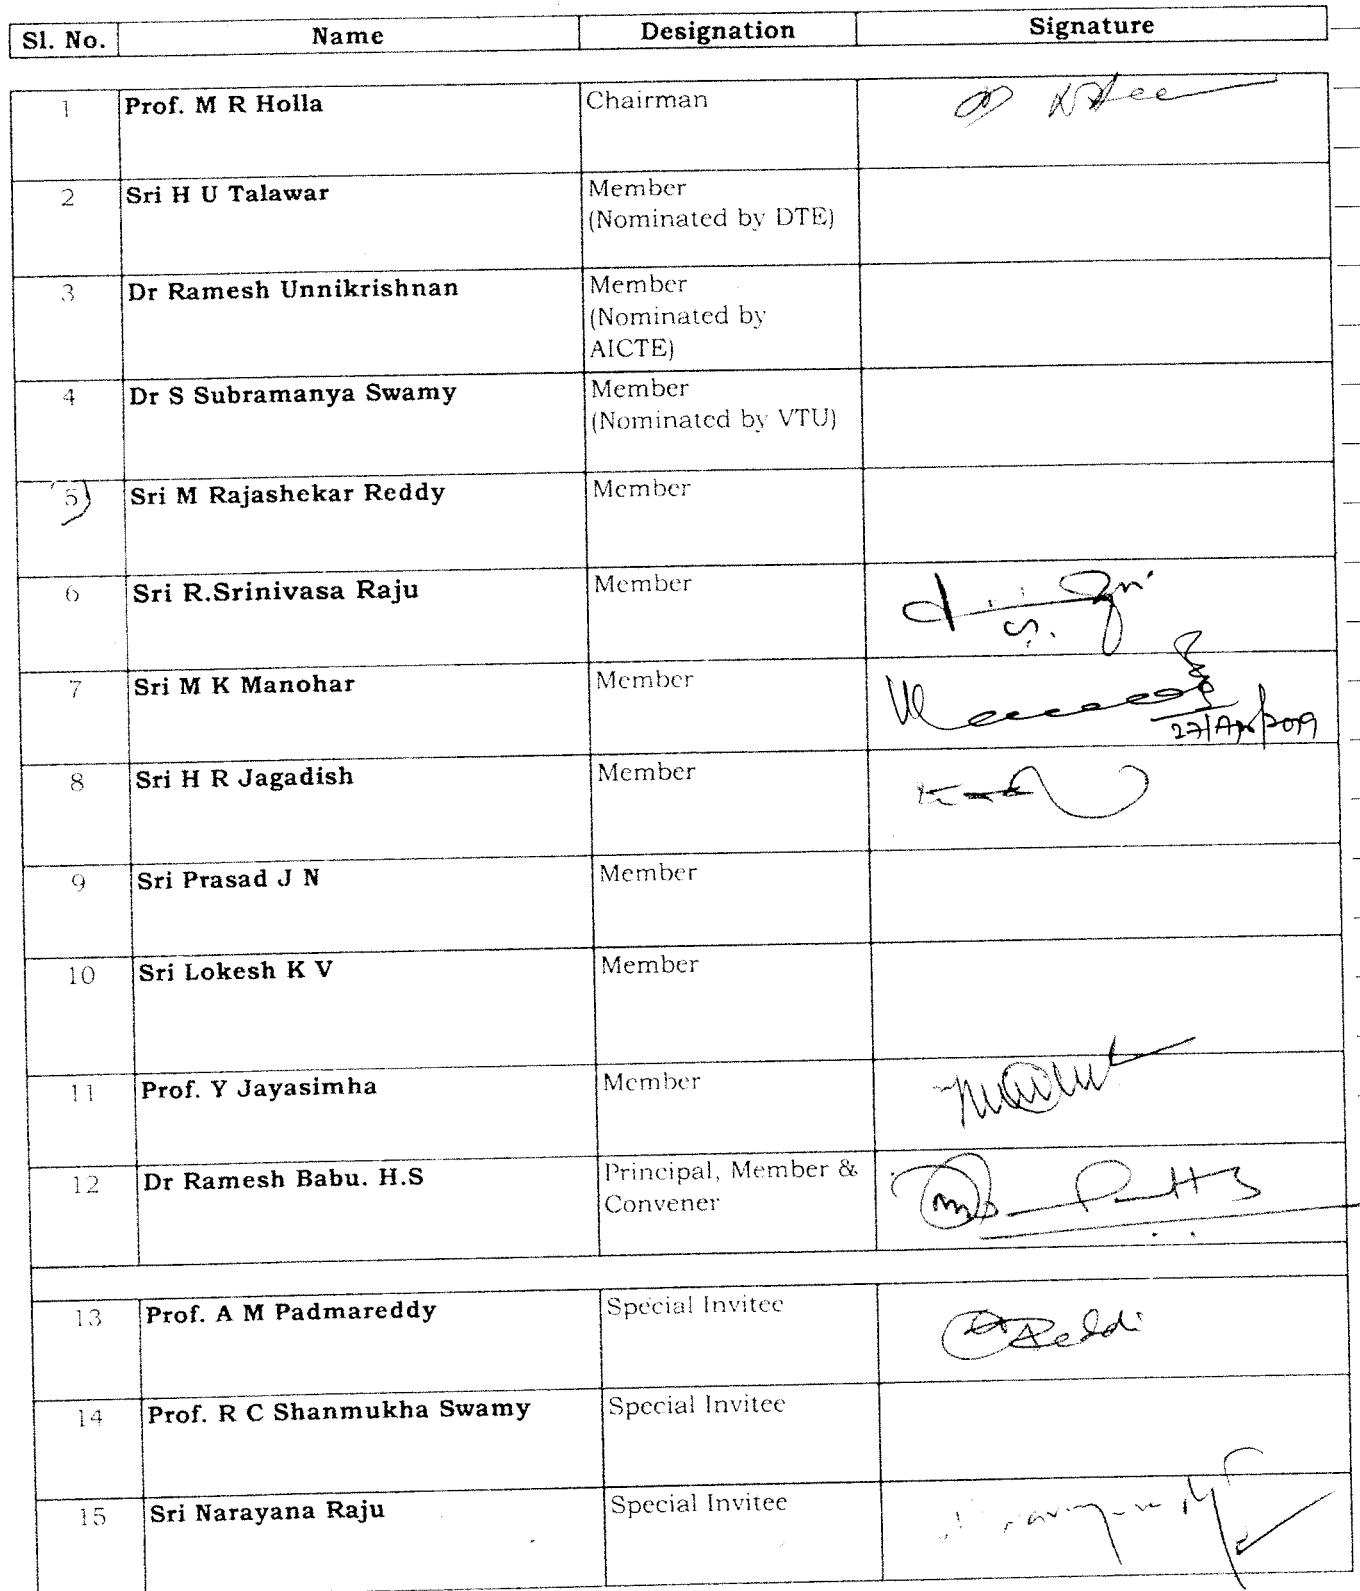 Sl. No. Name Designation Signature
1 Prof. M R Holla Chairman
2 Sri H U Talawar Member
(Nominated by DTE)
3 Dr Ramesh Unnikrishnan Member
(Nominated by
AICTE)
4 Dr S Subramanya Swamy Member
(Nominated by VTU)
5) Sri M Rajashekar Reddy Member
6 Sri R.Srinivasa Raju Member
7 Sri M K Manohar Member
27/Apr/2019
8 Sri H R Jagadish Member
9 Sri Prasad J N Member
10 Sri Lokesh K V Member
11 Prof. Y Jayasimha Member
12 Dr Ramesh Babu. H.S Principal, Member &
Convener
13 Prof. A M Padmareddy Special Invitee
14 Prof. R C Shanmukha Swamy Special Invitee
15 Sri Narayana Raju Special Invitee